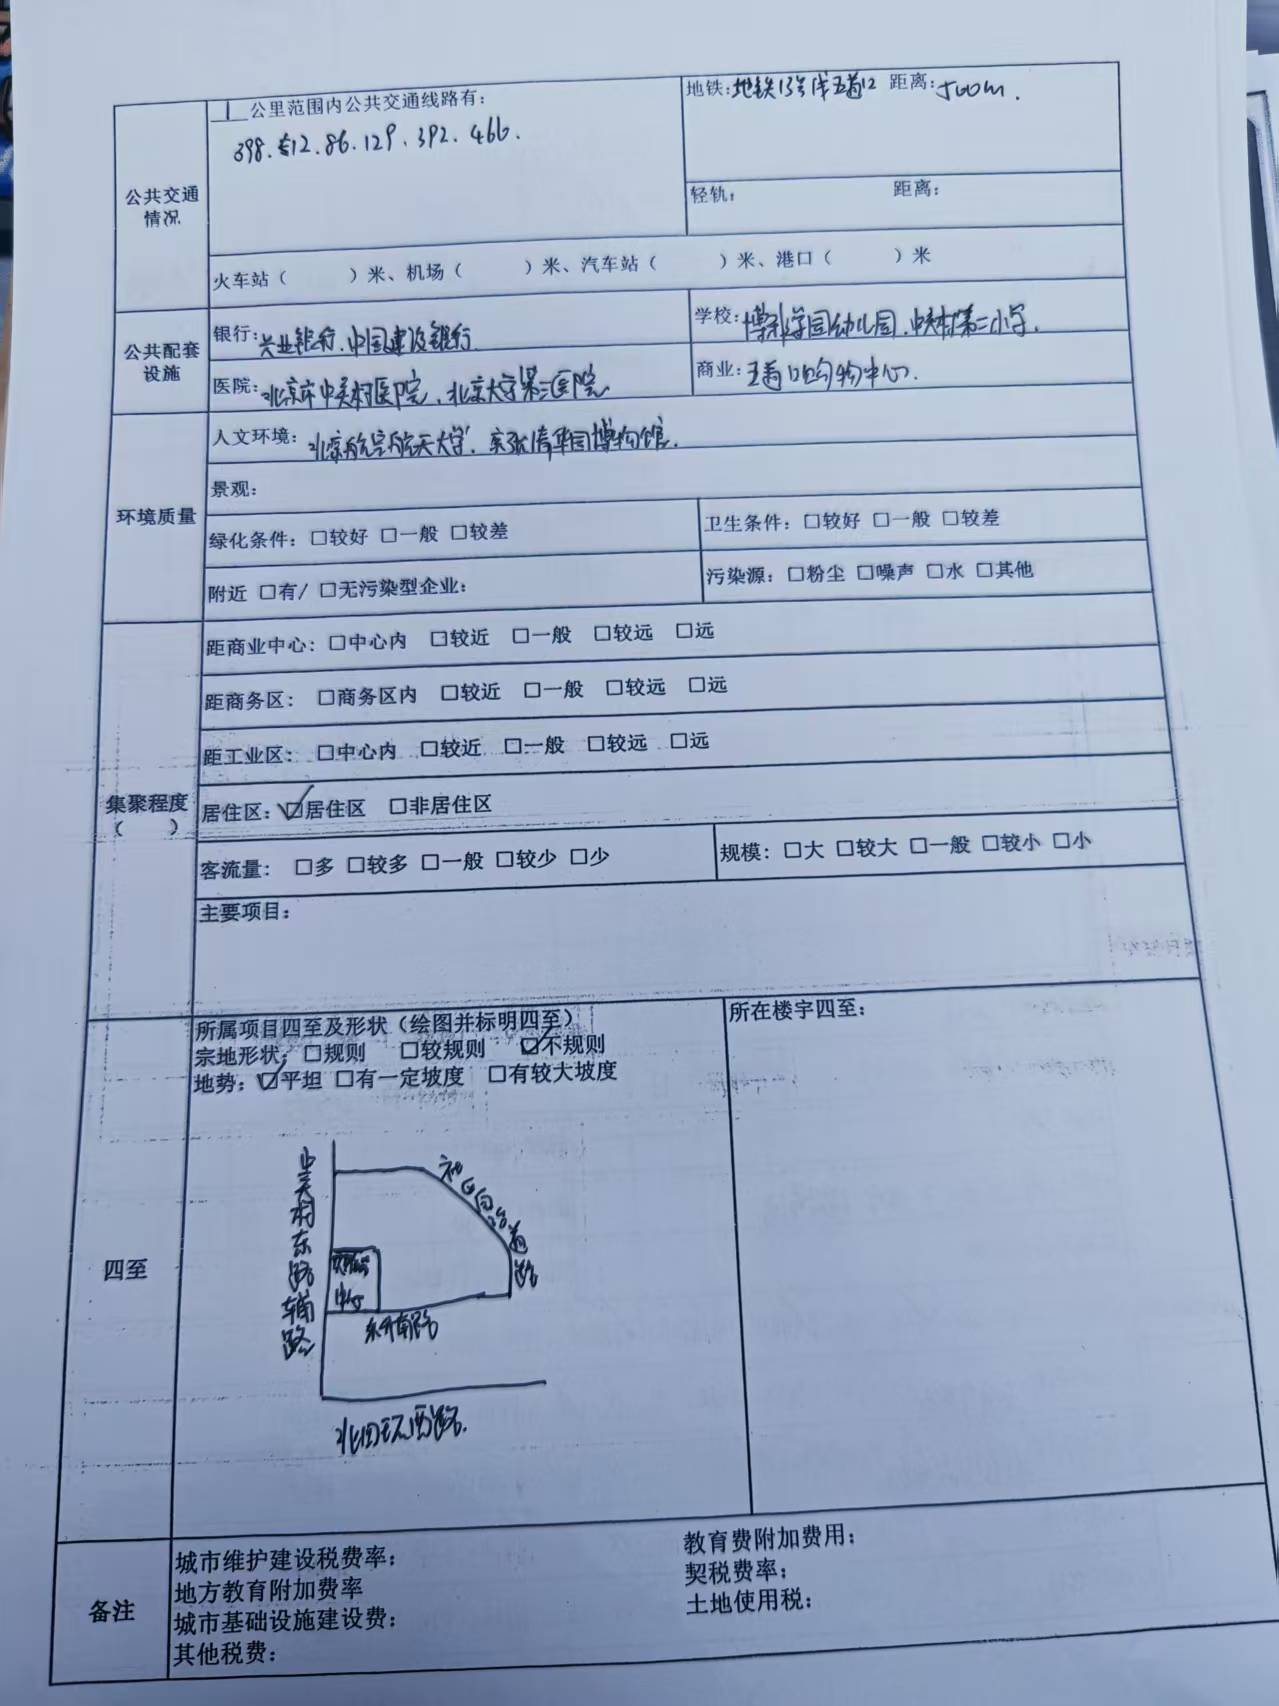 1 公里范围内公共交通线路有：
398.专12.86.129.392.466.
地铁：地铁13号线五道口 距离：500m.
公共交通
情况
轻轨： 距离：
火车站（ ）米、机场（ ）米、汽车站（ ）米、港口（ ）米
公共配套
设施
银行：兴业银行.中国建设银行
学校：博雅学园幼儿园.中关村第二小学.
医院：北京市中关村医院.北京大学第三医院
商业：五道口购物中心.
环境质量
人文环境：北京航空航天大学.京张清华园博物馆.
景观：
绿化条件：□较好 □一般 □较差
卫生条件：□较好 □一般 □较差
附近 □有/ □无污染型企业：
污染源：□粉尘 □噪声 □水 □其他
集聚程度
（ ）
距商业中心：□中心内 □较近 □一般 □较远 □远
距商务区： □商务区内 □较近 □一般 □较远 □远
距工业区： □中心内 □较近 □一般 □较远 □远
居住区：☑居住区 □非居住区
客流量： □多 □较多 □一般 □较少 □少
规模：□大 □较大 □一般 □较小 □小
主要项目：
四至
所属项目四至及形状（绘图并标明四至）
宗地形状：□规则 □较规则 ☑不规则
地势：☑平坦 □有一定坡度 □有较大坡度
所在楼宇四至：
中关村东路辅路
社区内部道路
中心
东升南路
北四环西路.
备注
城市维护建设税费率：
教育费附加费用：
地方教育附加费率
契税费率：
城市基础设施建设费：
土地使用税：
其他税费：